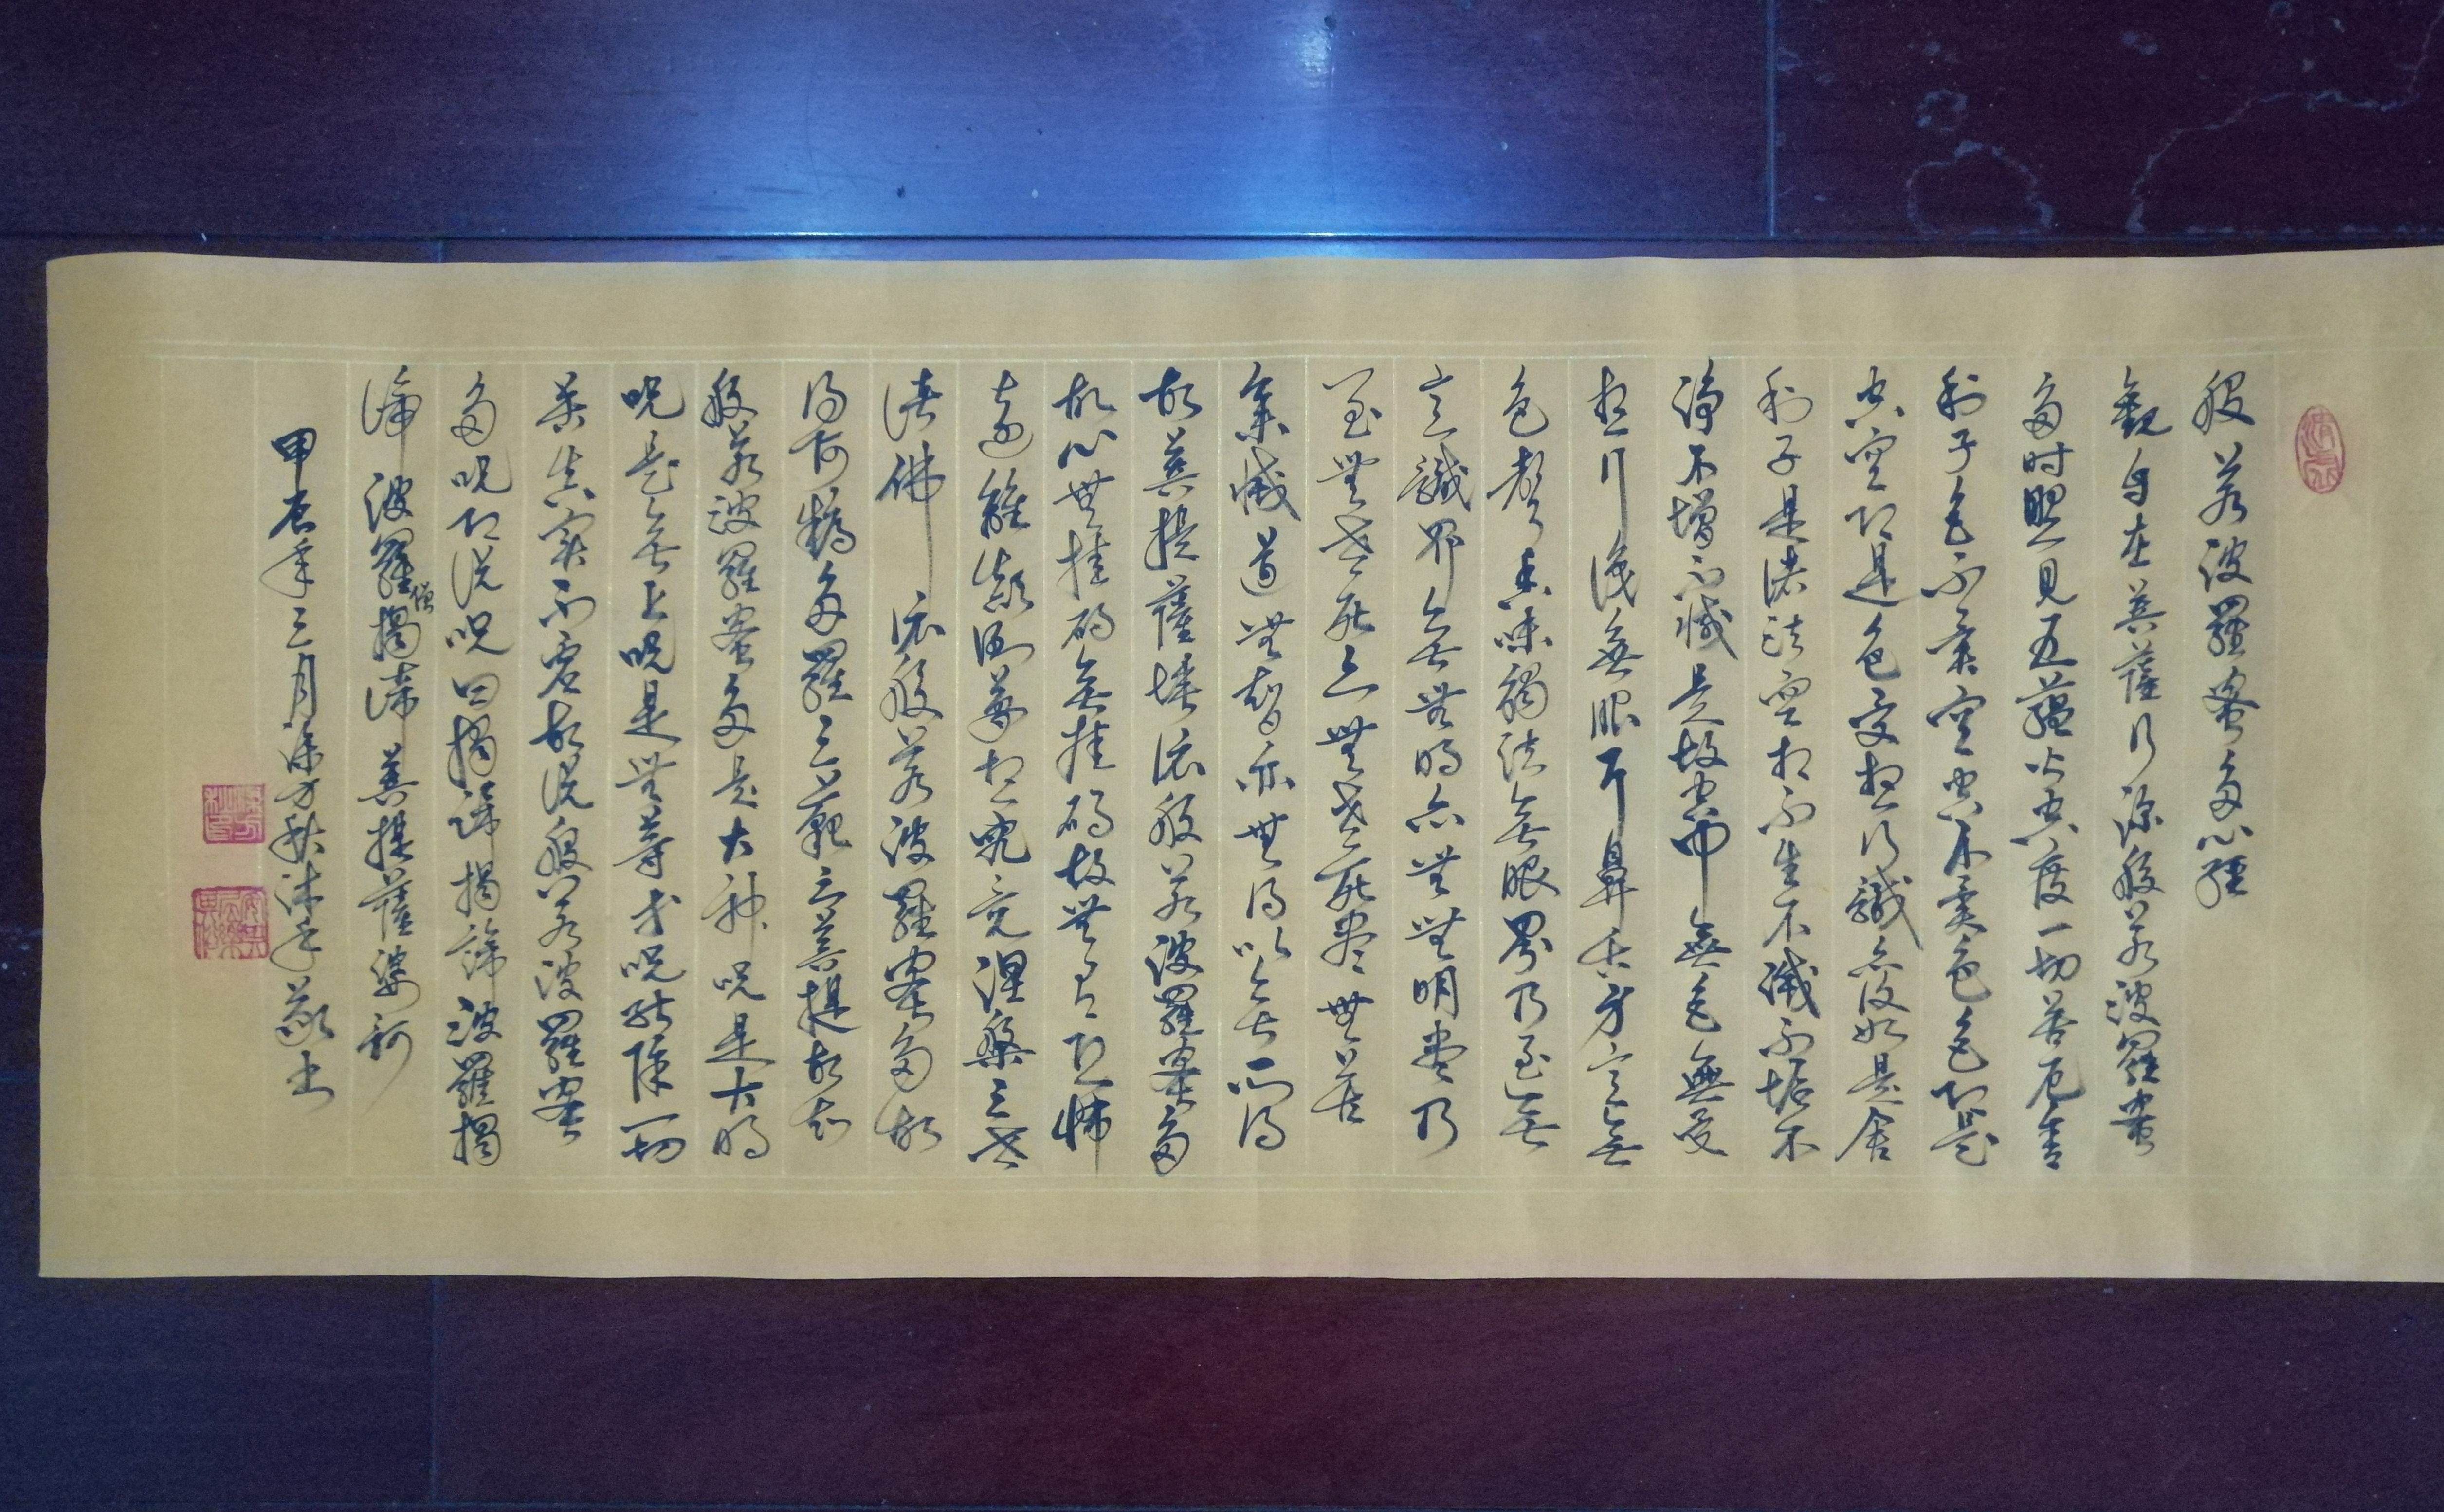 般若波羅蜜多心經
觀自在菩薩行深般若波羅蜜
多時照見五蘊皆空度一切苦厄舍
利子色不異空空不異色色即是
空空即是色受想行識亦復如是舍
利子是諸法空相不生不滅不垢不
淨不增不減是故空中無色無受
想行識無眼耳鼻舌身意無
色聲香味觸法無眼界乃至無
意識界無無明亦無無明盡乃
至無老死亦無老死盡無苦
集滅道無智亦無得以無所得
故菩提薩埵依般若波羅蜜多
故心無掛礙無掛礙故無有恐怖
遠離顛倒夢想究竟涅槃三世
諸佛依般若波羅蜜多故
得阿耨多羅三藐三菩提故知
般若波羅蜜多是大神呪是大明
呪是無上呪是無等等呪能除一切
苦真實不虛故說般若波羅蜜
多呪即說呪曰揭諦揭諦波羅揭
諦波羅僧揭諦菩提薩婆訶
甲辰年三月 沐手敬書